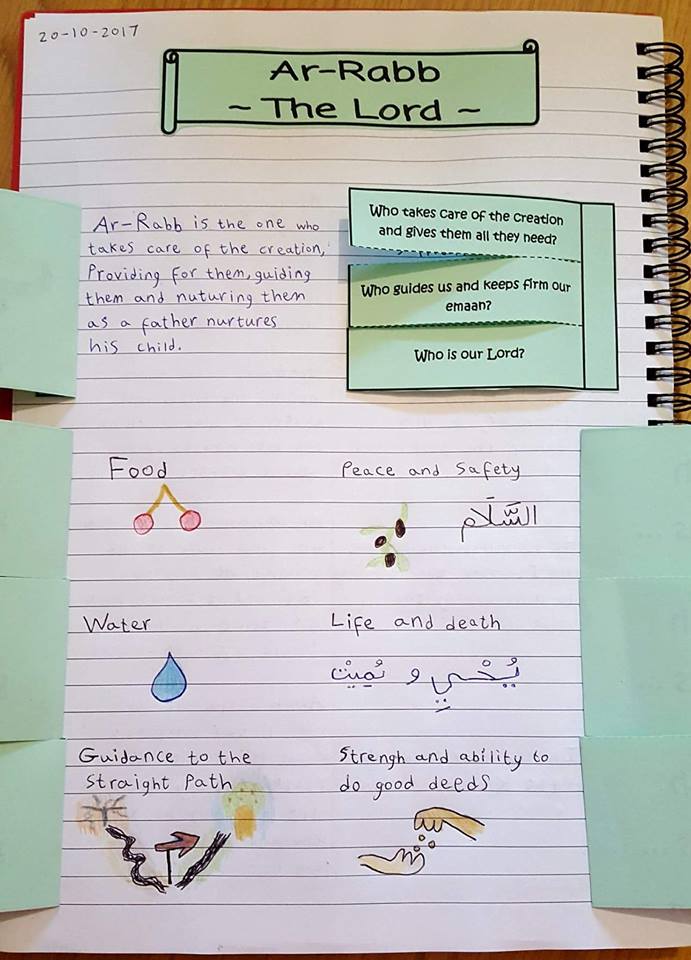 20-10-2017
Ar-Rabb
~ The Lord ~
Ar-Rabb is the one who
takes care of the creation,
Providing for them, guiding
them and nuturing them
as a father nurtures
his child.
Who takes care of the creation
and gives them all they need?
Who guides us and keeps firm our
emaan?
Who is our Lord?
Food
Peace and Safety
السَّلَام
Water
Life and death
يُحْيِي و يُمِيتْ
Guidance to the
Straight Path
Strengh and ability to
do good deeds